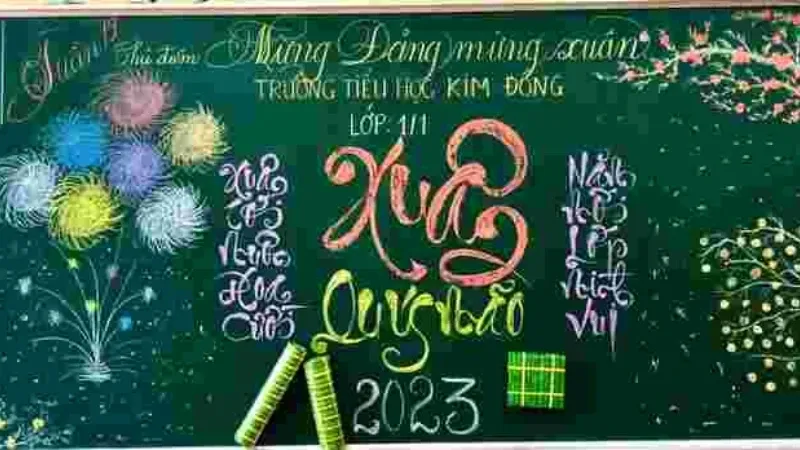 Tuần 19
Chủ điểm Mừng Đảng mừng xuân
TRƯỜNG TIỂU HỌC KIM ĐỒNG
LỚP: 1/1
Xuân
Quý Mão
2023
Xuân
tới
muôn
Hoa
cười
Năm
mới
Lớp
mình
vui